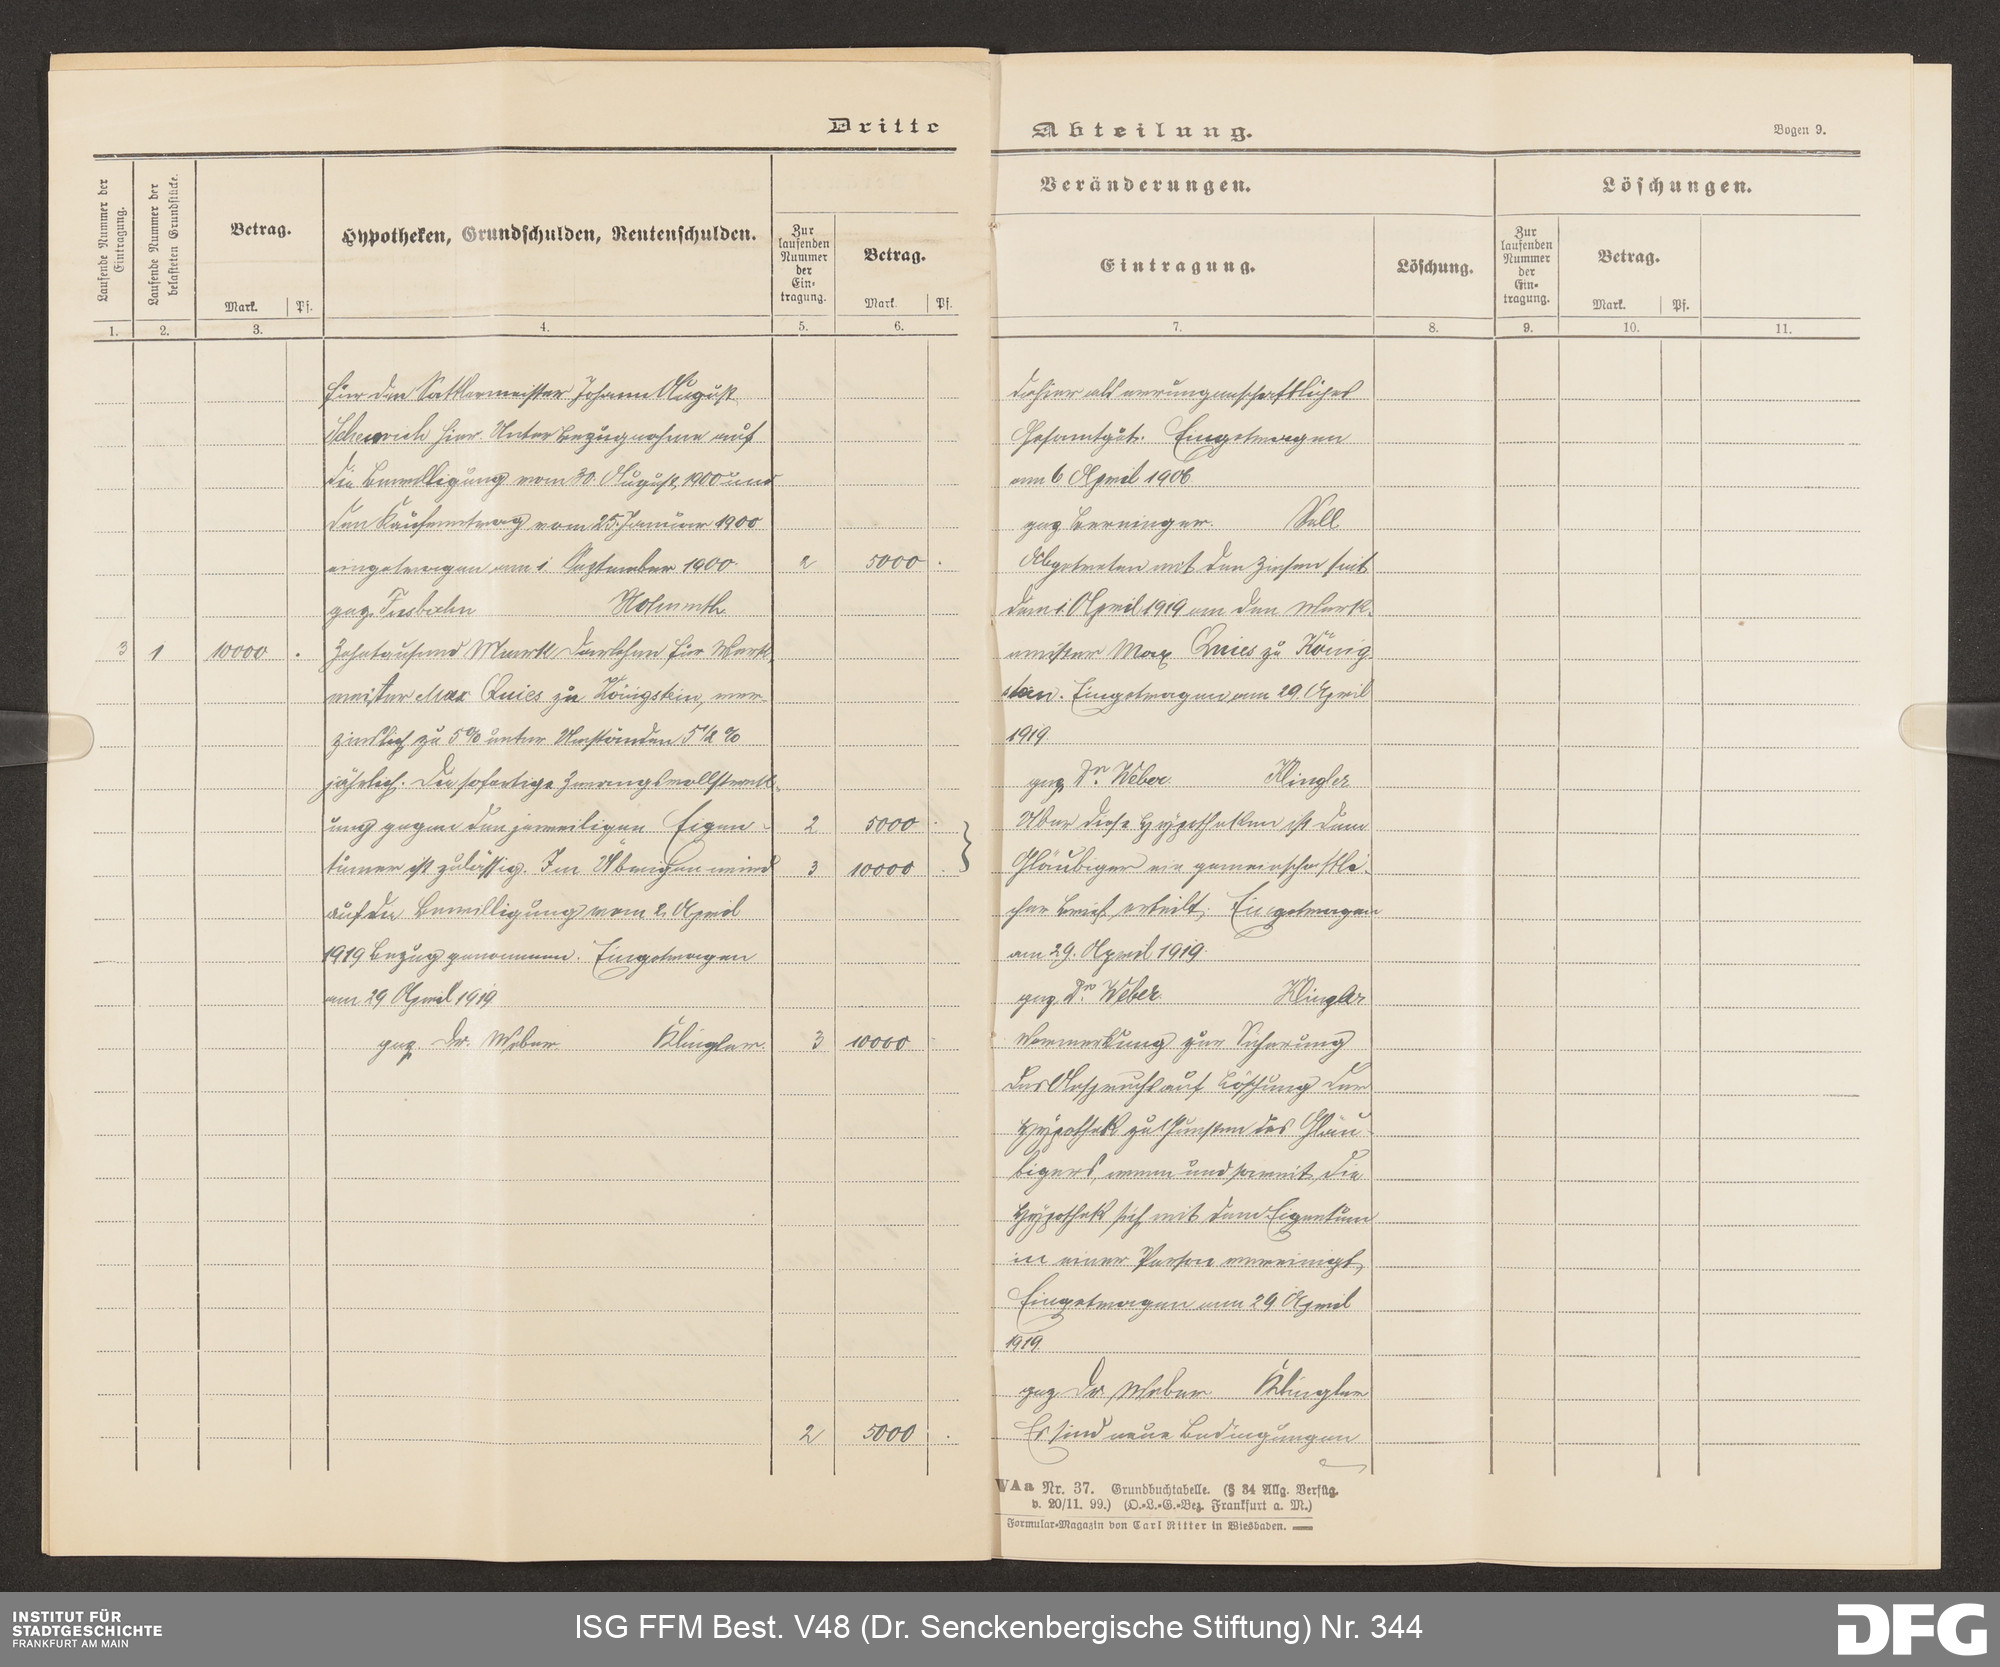 Dritte
Abteilung.
Bogen 9.
Laufende Nummer der Eintragung.
Laufende Nummer der belasteten Grundstücke.
Betrag.
Mark. Pf.
Hypotheken, Grundschulden, Rentenschulden.
Zur laufenden Nummer der Ein-tragung.
Betrag.
Mark. Pf.
Veränderungen.
Eintragung.
Löschung.
Löschungen.
Zur laufenden Nummer der Ein-tragung.
Betrag.
Mark. Pf.
1. 2. 3. 4. 5. 6. 7. 8. 9. 10. 11.
für den Sattlermeister Johann August
hier. Unter Bezugnahme auf
die Bewilligung vom 30. August 1900 und
den Kaufvertrag vom 25. Januar 1900
eingetragen am 1. September 1900.
gez.
3 1 10000 . Zehntausend Mark Darlehen für Werk-
meister Max Quies zu Königstein, ver-
zinslich zu 5% unter Umständen 5 1/2 %
jährlich. Die sofortige Zwangsvollstreck-
ung gegen den jeweiligen Eigen-
tümer ist zulässig. Im Übrigen wird
auf die Bewilligung vom 2. April
1919 Bezug genommen. Eingetragen
am 29 April 1919
gez. Dr. Weber. Klingler.
dahier als errungenschaftliches
Gesamtgut. Eingetragen
am 6 April 1906
gez Berninger. Sell
2 5000 . Abgetreten mit den Zinsen seit
dem 1. April 1919 an den Werk-
meister Max Quies zu König
stein. Eingetragen am 29. April
1919.
gez Dr. Weber. Klingler
2 5000 . Über diese Hypotheken ist dem
3 10000 . Gläubiger ein gemeinschaftli-
cher Brief erteilt. Eingetragen
am 29. April 1919.
gez Dr. Weber. Klingler
3 10000 Vormerkung zur Sicherung
des Anspruchs auf Löschung der
Hypothek zu Gunsten des Gläu-
bigers, wenn und soweit die
Hypothek sich mit dem Eigentum
in einer Person vereinigt,
Eingetragen am 29 April
1919.
gez Dr Weber Klingler
2 5000 . Es sind neue Bedingungen
VAa Nr. 37. Grundbuchtabelle. (§ 34 Allg. Verfüg.
v. 20/11. 99.) (O.-L.-G.-Bez. Frankfurt a. M.)
Formular-Magazin von Carl Ritter in Wiesbaden.
INSTITUT FÜR
STADTGESCHICHTE
FRANKFURT AM MAIN
ISG FFM Best. V48 (Dr. Senckenbergische Stiftung) Nr. 344
DFG